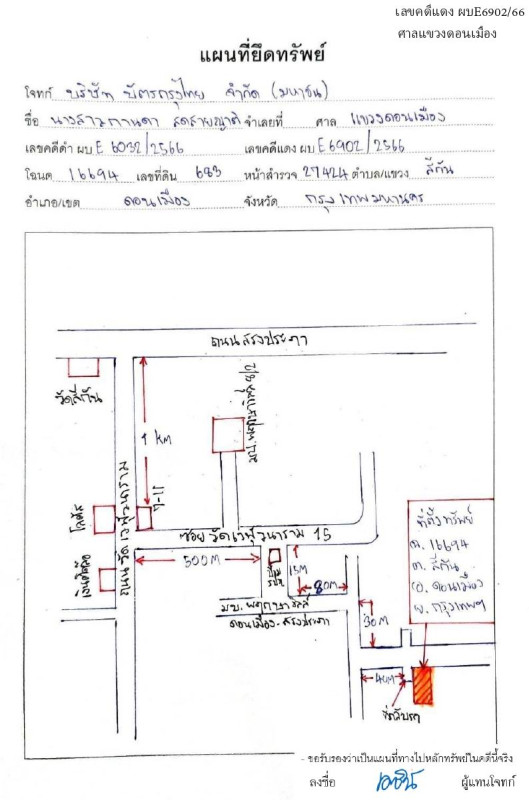 เลขคดีแดง ผบE6902/66
ศาลแขวงดอนเมือง
แผนที่ยึดทรัพย์
โจทก์ บริษัท บัตรกรุงไทย จำกัด (มหาชน)
ชื่อ นางสาวกานดา สดสายญาติ จำเลยที่ ศาล แขวงดอนเมือง
เลขคดีดำ ผบE 6032/2566 เลขคดีแดง ผบE 6902/2566
โฉนด 16694 เลขที่ดิน 683 หน้าสำรวจ 27424 ตำบล/แขวง สีกัน
อำเภอ/เขต ดอนเมือง จังหวัด กรุงเทพมหานคร
ถนนสรงประภา
วัดสีกัน
1 km
มบ.พฤกษา
โลตัส
7-11
ถนนวัดเวฬุวนาราม
ซอยวัดเวฬุวนาราม 15
เงินติดล้อ
500m
ป้อม รปภ.
15m
80m
มบ. พฤกษา
ดอนเมือง-สรงประภา
30m
40m
ที่ตั้งทรัพย์
ฉ. 16694
ต. สีกัน
อ. ดอนเมือง
จ. กรุงเทพฯ
ที่กลับรถ
- ขอรับรองว่าเป็นแผนที่ทางไปหลักทรัพย์ในคดีนี้จริง
ลงชื่อ ผู้แทนโจทก์